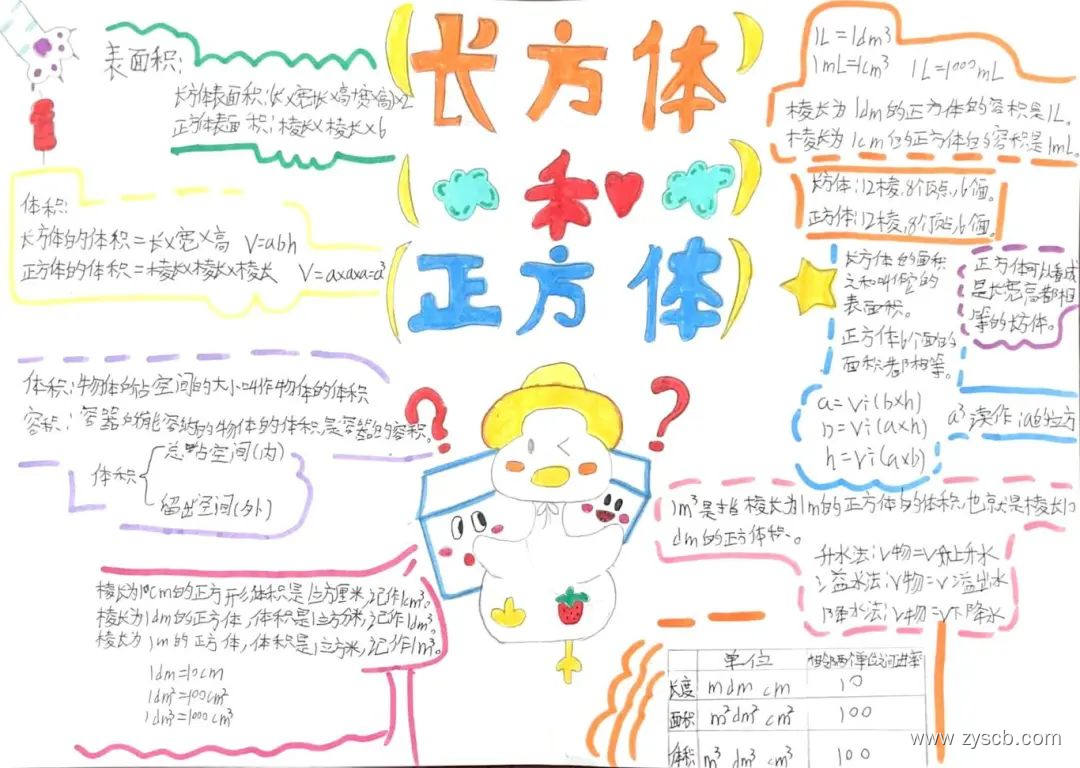 长方体
和
正方体
表面积:
长方体表面积:(长×宽+长×高+宽×高)×2
正方体表面积:棱长×棱长×6
体积:
长方体的体积=长×宽×高 V=abh
正方体的体积=棱长×棱长×棱长 V=a×a×a=a³
体积:物体所占空间的大小叫作物体的体积
容积:容器所能容纳的物体的体积是容器的容积。
体积
占空间(内)
留出空间(外)
体积是1立方厘米,记作1cm³。
棱长为1dm的正方体,体积是1立方分米,记作1dm³。
棱长为1m的正方体,体积是1立方米,记作1m³。
1dm=10cm
1dm²=100cm²
1dm³=1000cm³
1L=1dm³
1mL=1cm³ 1L=1000mL
棱长为1dm的正方体的容积是1L。
棱长为1cm的正方体的容积是1mL。
长方体:12棱,8个顶点,6个面。
正方体:12棱,8个顶点,6个面。
长方体的面积
之和叫作它的
表面积。
正方体6个面的
面积都相等。
正方体可以看成
是长宽高都相
等的长方体。
a=V÷(b×h)
b=V÷(a×h)
h=V÷(a×b)
a³读作:a的立方
1m³是指棱长为1m的正方体的体积,也就是棱长10
dm的正方体体积。
升水法:V物=V上升水
溢水法:V物=V溢出水
降水法:V物=V下降水
单位 相邻两个单位间进率
长度 m dm cm 10
面积 m² dm² cm² 100
体积 m³ dm³ cm³ 100
www.zyscb.com